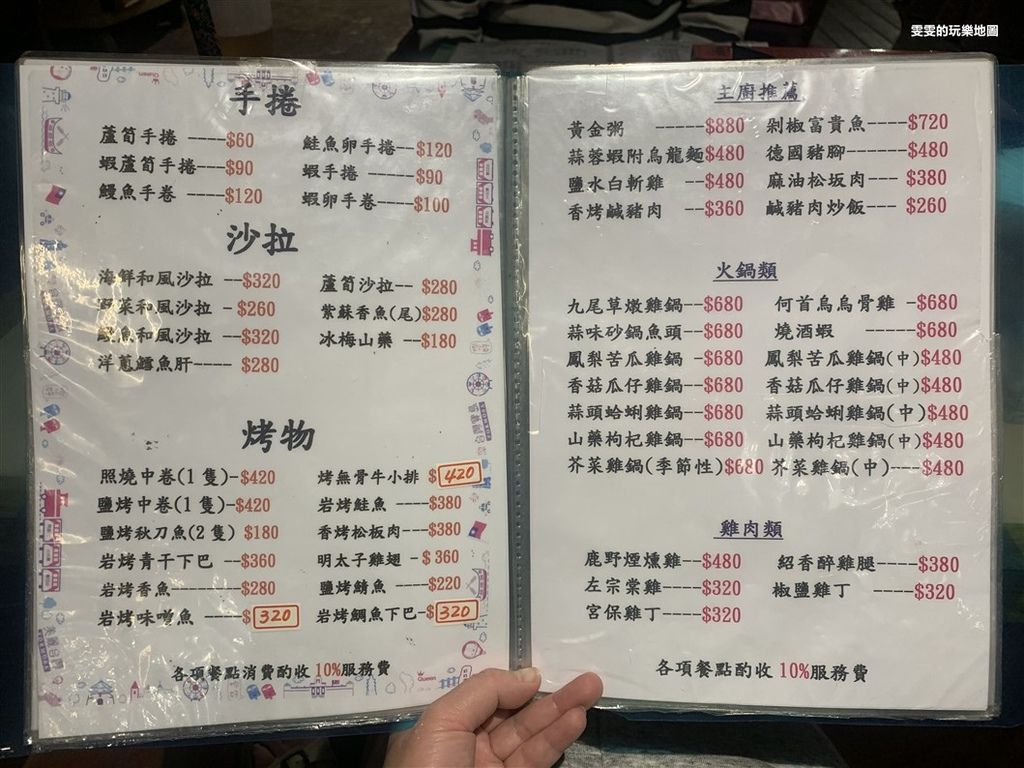 雯雯的玩樂地圖
手捲
蘆筍手捲 ----$60 鮭魚卵手捲--$120
蝦蘆筍手捲---$90 蝦手捲 -----$90
鰻魚手卷 ----$120 蝦卵手卷----$100
沙拉
海鮮和風沙拉 --$320 蘆筍沙拉-- $280
菜和風沙拉 -$260 紫蘇香魚(尾)$280
魚和風沙拉 --$320 冰梅山藥 --$180
洋蔥鱈魚肝---- $280
烤物
照燒中卷(1隻)-$420 烤無骨牛小排 $420
鹽烤中卷(1隻)-$420 岩烤鮭魚 ----$380
鹽烤秋刀魚(2隻) $180 香烤松板肉---$380
岩烤青干下巴 --$360 明太子雞翅 -$360
岩烤香魚-------$280 鹽烤鯖魚 ----$220
岩烤味噌魚 ----$320 岩烤鯛魚下巴-$320
各項餐點消費酌收 10%服務費
主廚推薦
黃金粥 ------$880 剁椒富貴魚---$720
蒜蓉蝦附烏龍麵$480 德國豬腳-------$480
鹽水白斬雞 --$480 麻油松坂肉--- $380
香烤鹹豬肉 --$360 鹹豬肉炒飯--- $260
火鍋類
九尾草燉雞鍋--$680 何首烏烏骨雞 -$680
蒜味砂鍋魚頭--$680 燒酒蝦 -----$680
鳳梨苦瓜雞鍋 -$680 鳳梨苦瓜雞鍋(中)$480
香菇瓜仔雞鍋--$680 香菇瓜仔雞鍋(中)$480
蒜頭蛤蜊雞鍋--$680 蒜頭蛤蜊雞鍋(中)$480
山藥枸杞雞鍋--$680 山藥枸杞雞鍋(中)$480
芥菜雞鍋(季節性)$680 芥菜雞鍋(中)---$480
雞肉類
鹿野煙燻雞--$480 紹香醉雞腿----$380
左宗棠雞----$320 椒鹽雞丁 ----$320
宮保雞丁----$320
各項餐點酌收 10%服務費